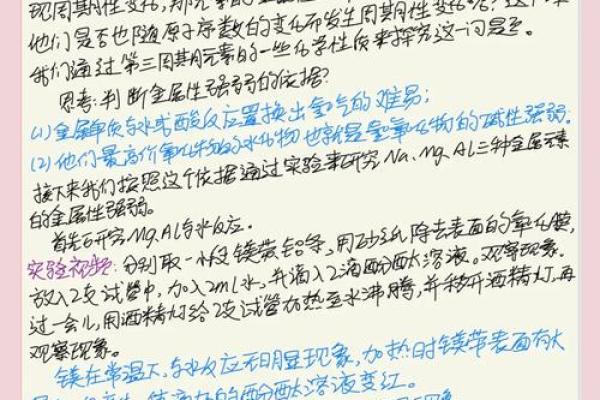 现周期性变化,那元素的
他们是否也随原子序数的变化而发生周期性变化呢?这节
我们通过第三周期元素的一些化学性质来探究这一问题。
思考:判断金属性强弱的依据?
(1)金属单质与水或酸反应置换出氢气的难易;
(2)他们最高价氧化物的水化物也就是氢氧化物的碱性强弱.
接下来我们按照这个依据通过实验来研究Na、Mg、Al三种金属元素
的金属性强弱。
首先研究Mg、Al与水反应.
实验视频:分别取一小段镁带铝条,用砂纸除去表面的氧化膜,
放入2支试管中,加入2mL水,并滴入2滴酚酞溶液。观察现象.
过一会儿,用酒精灯给2支试管加热至水沸腾,并移开酒精灯,再
观察现象。
镁在常温下,与水反应无明显现象,加热时镁带表面有大
酚酞溶液变红.